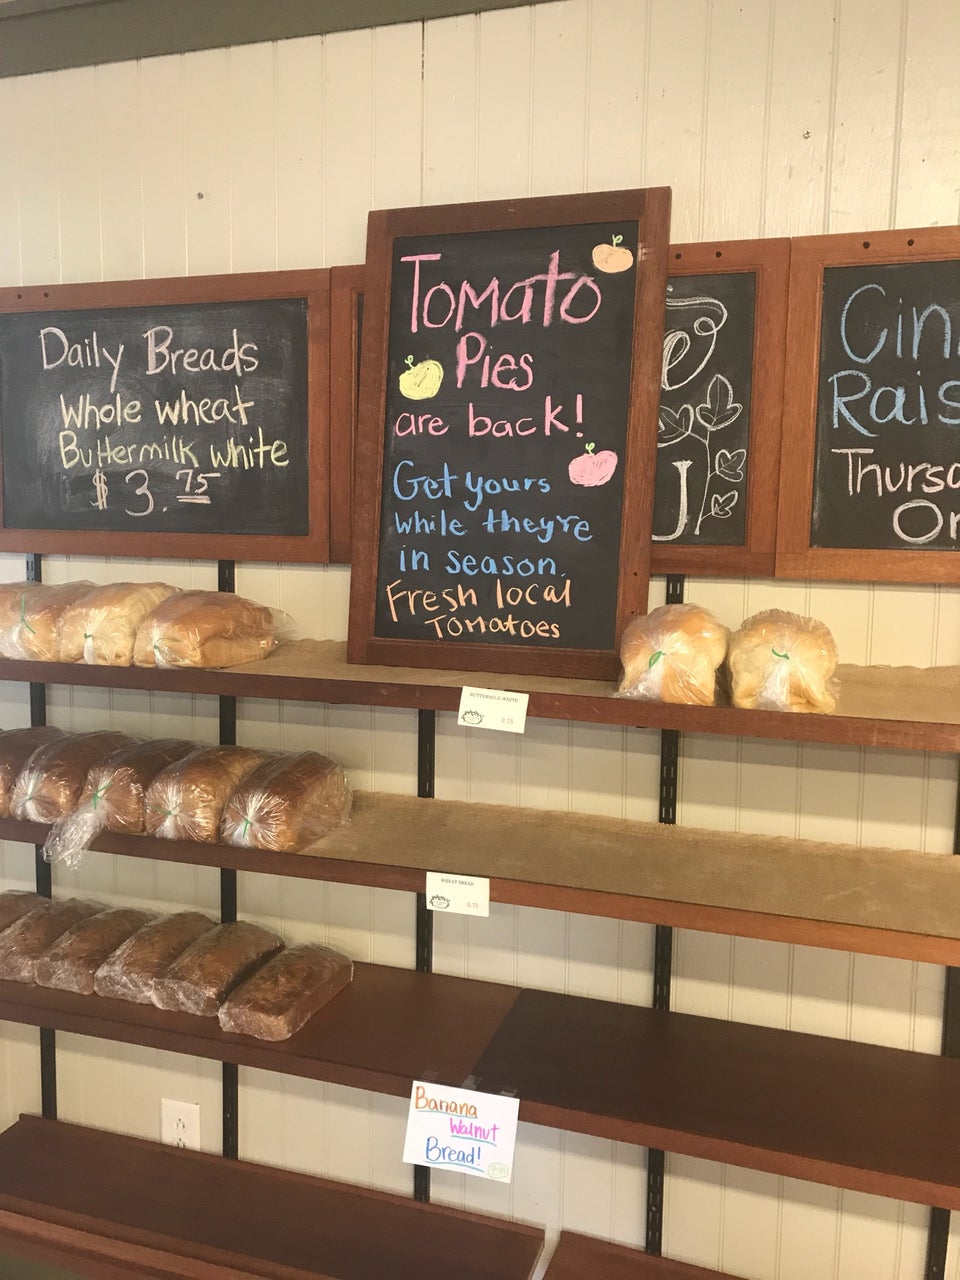 Daily Breads
Whole wheat
Buttermilk white
$3.75
Tomato
Pies
are back!
Get yours
while they're
in season.
Fresh local
Tomatoes
Cin
Rais
Thursd
On
BUTTERMILK WHITE
3.75
WHEAT BREAD
3.75
Banana
Walnut
Bread!